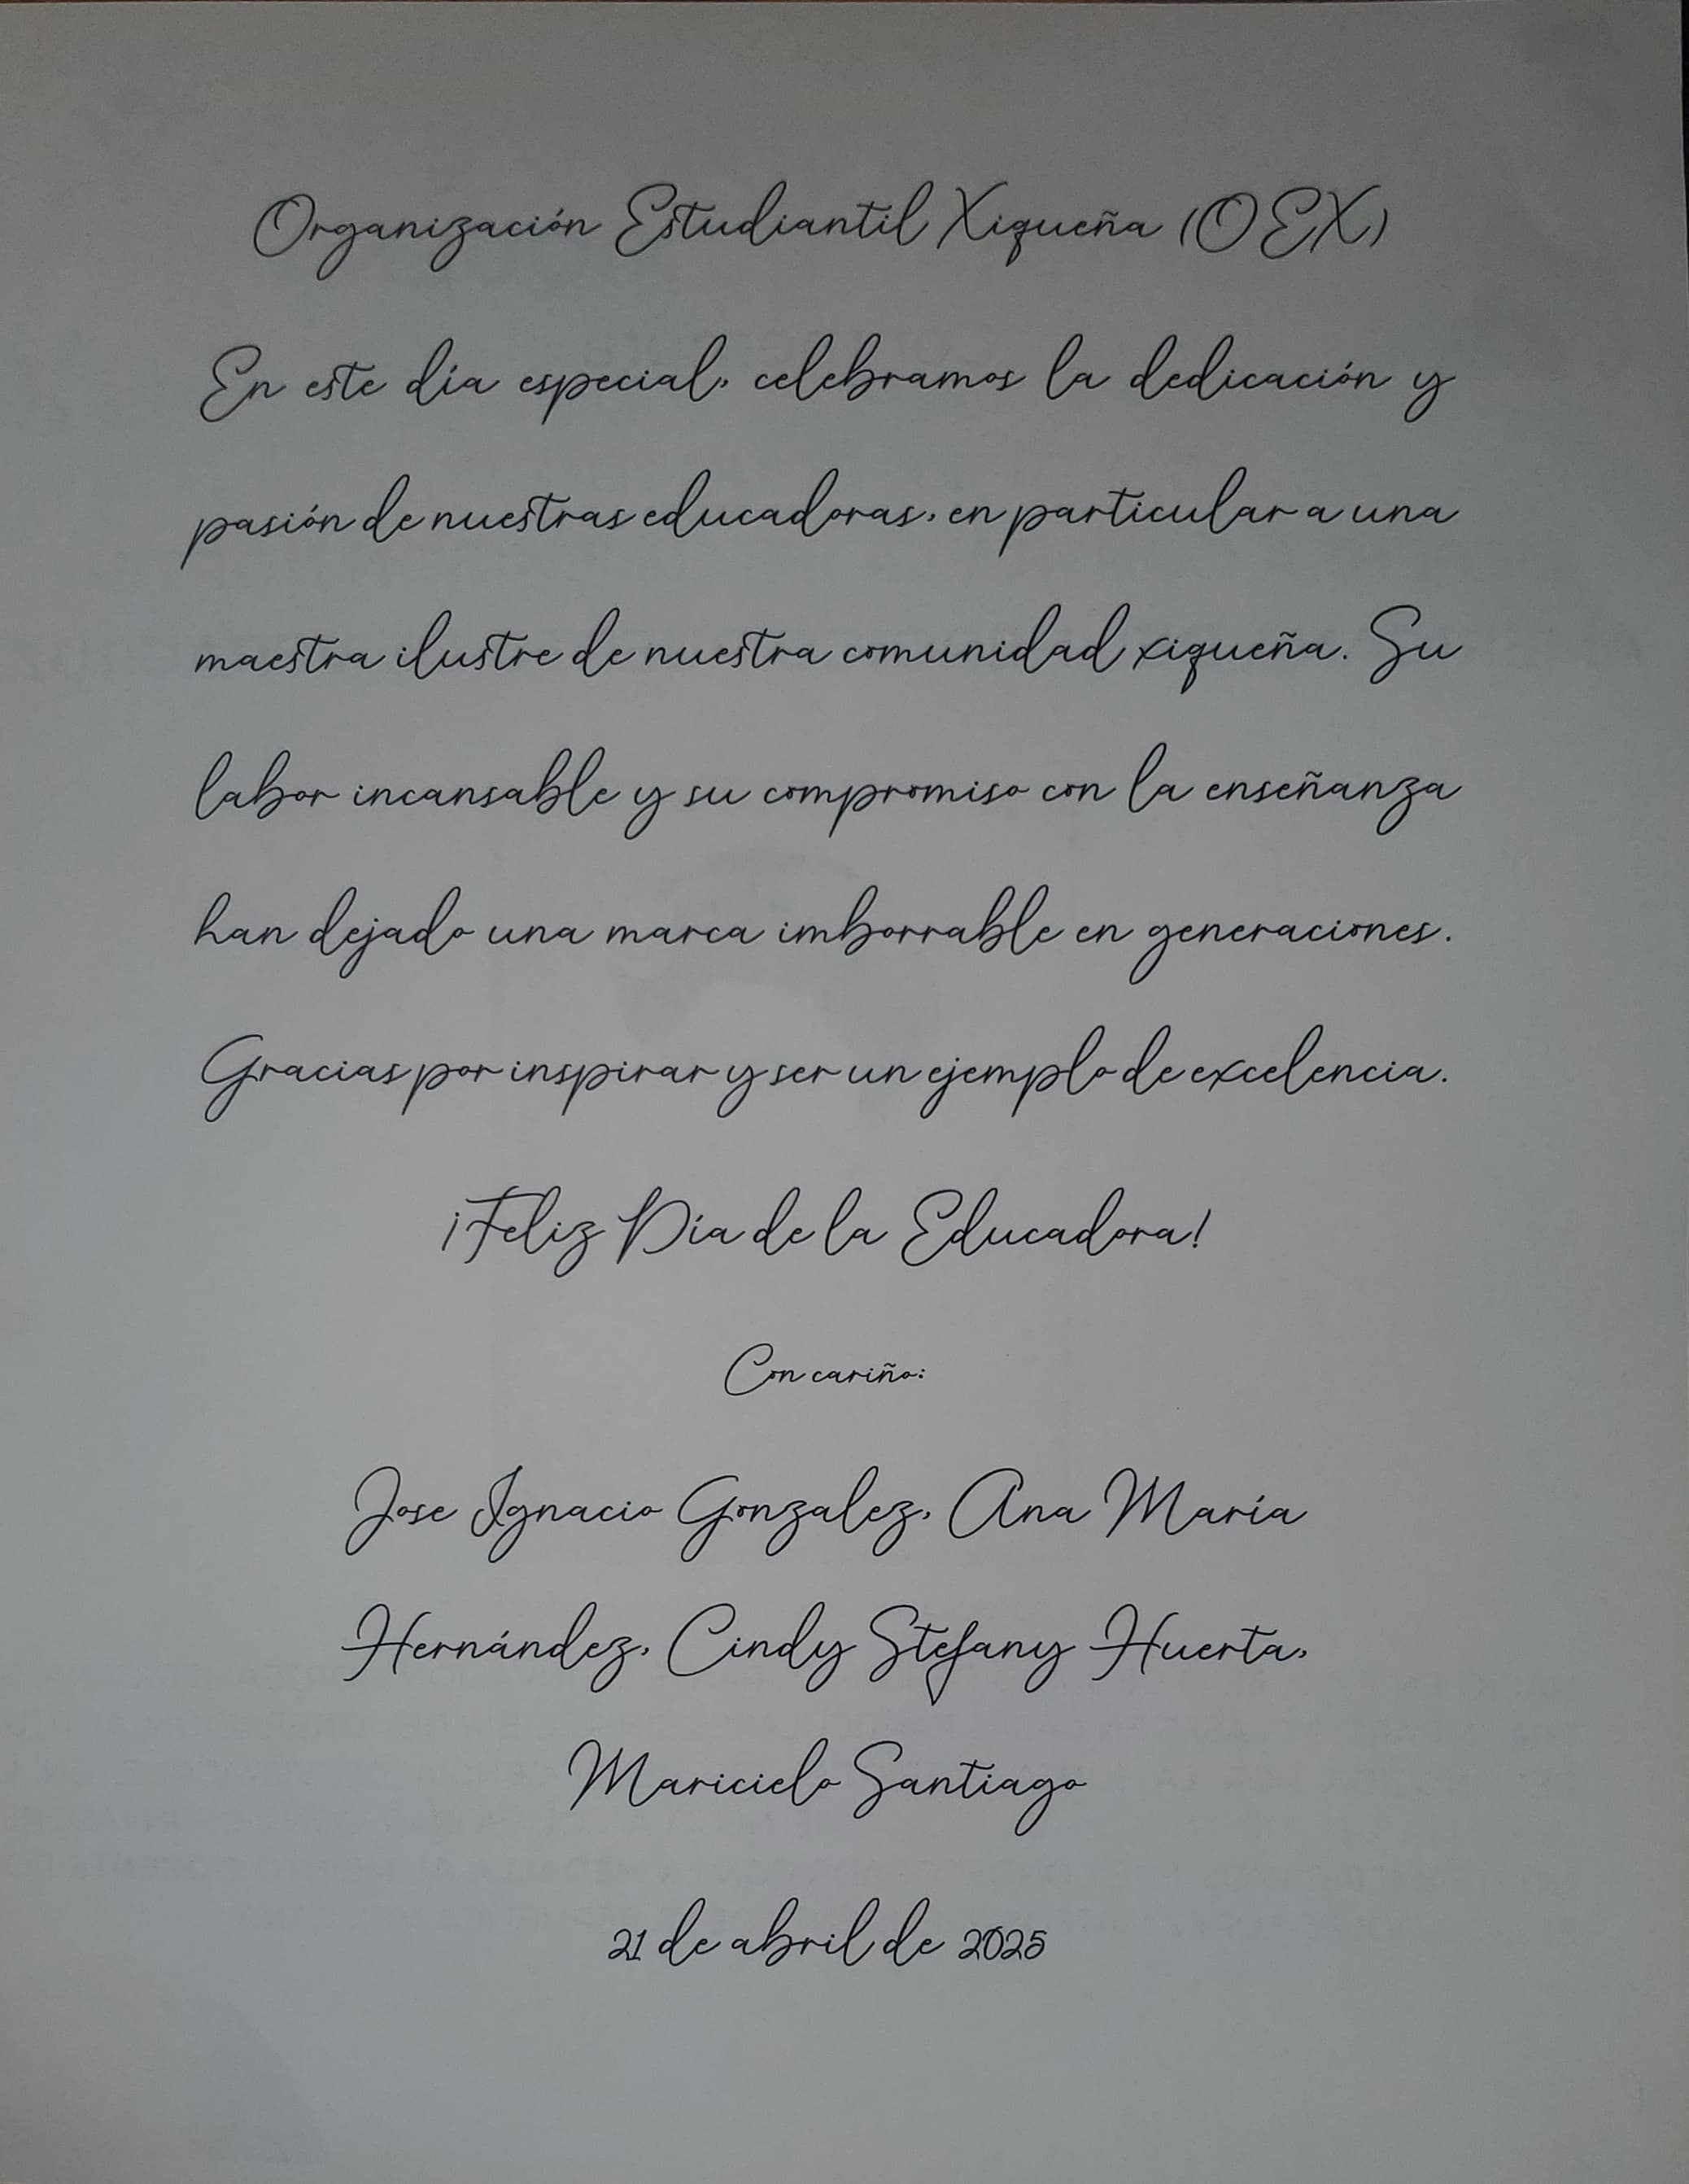 Organización Estudiantil Xiqueña (OEX)
En este día especial, celebramos la dedicación y
pasión de nuestras educadoras, en particular a una
maestra ilustre de nuestra comunidad xiqueña. Su
labor incansable y su compromiso con la enseñanza
han dejado una marca imborrable en generaciones.
Gracias por inspirar y ser un ejemplo de excelencia.
¡Feliz Día de la Educadora!
Con cariño:
Jose Ignacio Gonzalez, Ana María
Hernández, Cindy Stefany Huerta,
Maricielo Santiago
21 de abril de 2025